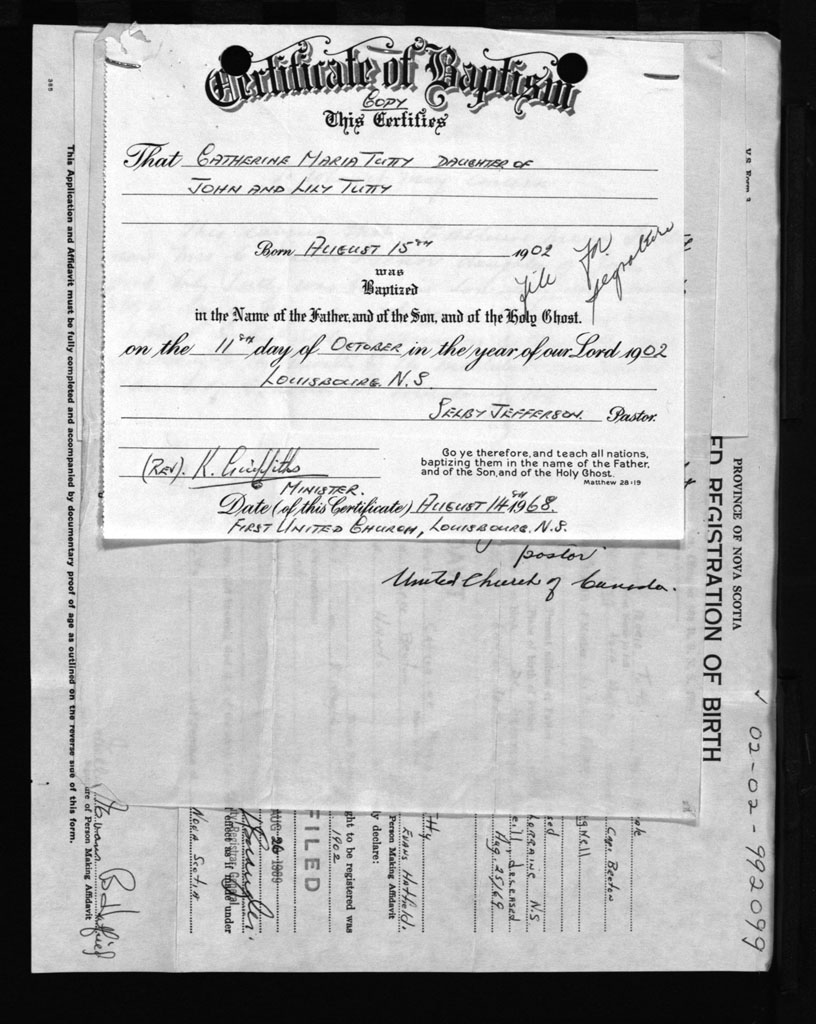 Certificate of Baptism
COPY
This Certifies
That CATHERINE MARIA TUTTY DAUGHTER OF
JOHN AND LILY TUTTY
Born AUGUST 15TH 1902
was
Baptized
File for
in the Name of the Father, and of the Son, and of the Holy Ghost.
on the 11TH day of OCTOBER in the year of our Lord 1902
LOUISBOURG. N.S.
SELBY JEFFERSON. Pastor.
(REV). K. Griffiths
MINISTER.
Go ye therefore, and teach all nations,
baptizing them in the name of the Father,
and of the Son, and of the Holy Ghost.
Matthew 28:19
Date (of this Certificate) AUGUST 14TH 1968.
FIRST UNITED CHURCH, LOUISBOURG. N.S.
pastor
United Church of Canada.
This Application and Affidavit must be fully completed and accompanied by documentary proof of age as outlined on the reverse side of this form.
PROVINCE OF NOVA SCOTIA
ED REGISTRATION OF BIRTH
02-02-992099
Cape Breton
LORRAINE N.S
deceased
Aug. 25/69
Evans Hatfield.
Person Making Affidavit
y declare:
ght to be registered was
1902
FILED
AUG 26 1969
Registrar General
under
Nova Scotia
Evans B Hatfield
ure of Person Making Affidavit